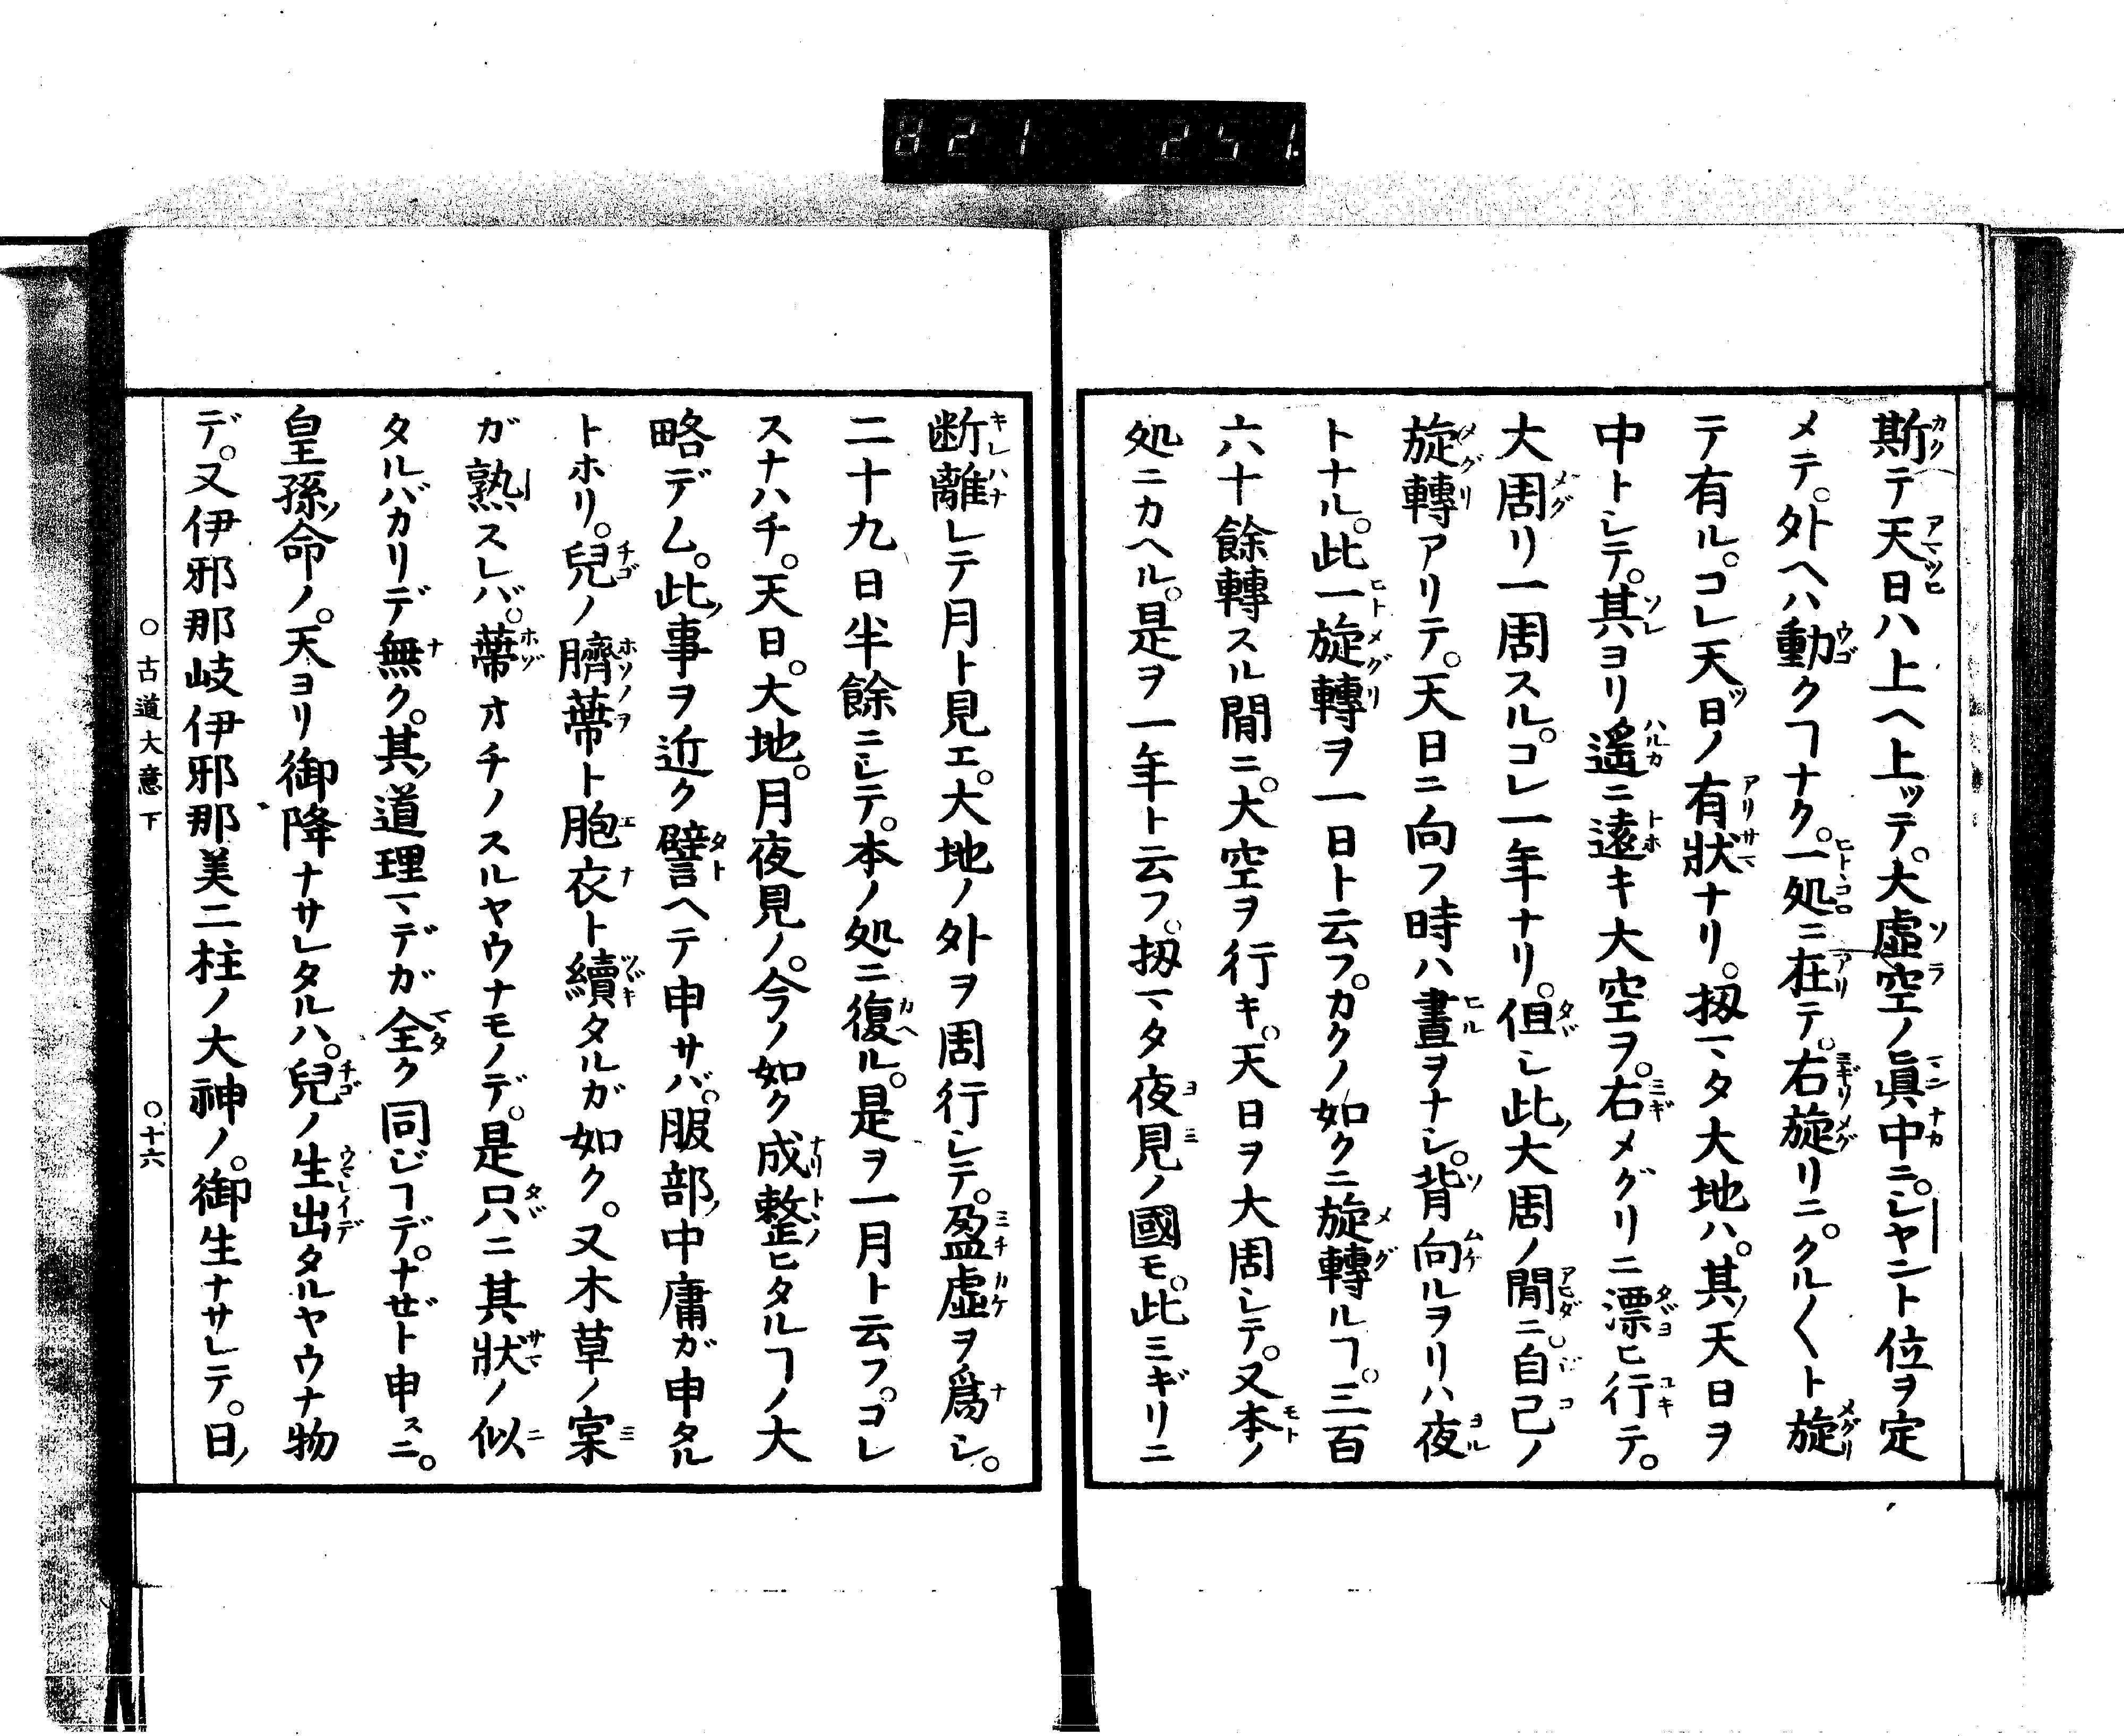 821 251.
斯テ天日ハ上ヘ上ッテ。大虚空ノ眞中ニ。シヤント位ヲ定
メテ。外ヘハ動クヿナク。一処ニ在テ。右旋リニ。クル〱ト旋
テ有ル。コレ天日ノ有狀ナリ。扨マタ大地ハ。其ノ天日ヲ
中トシテ。其ヨリ遙ニ遠キ大空ヲ。右メグリニ漂ヒ行テ。
大周リ一周スル。コレ一年ナリ。但シ此ノ大周ノ閒ニ。自己ノ
旋轉アリテ。天日ニ向フ時ハ晝ヲナシ。背向ルヲリハ夜
トナル。此一旋轉ヲ一日ト云フ。カクノ如クニ旋轉ルヿ。三百
六十餘轉スル閒ニ。大空ヲ行キ。天日ヲ大周シテ。又本ノ
処ニカヘル。是ヲ一年ト云フ。扨マタ夜見ノ國モ。此ミギリニ
断離レテ月ト見エ。大地ノ外ヲ周行シテ。盈虚ヲ爲シ。
二十九日半餘ニシテ。本ノ処ニ復ル。是ヲ一月ト云フ。コレ
スナハチ。天日。大地。月夜見ノ。今ノ如ク成整ヒタルヿノ大
略デム。此ノ事ヲ近ク譬ヘテ申サバ。服部ノ中庸ガ申タル
トホリ。兒ノ臍蔕ト胞衣ト續タルガ如ク。又木草ノ寀
ガ熟スレバ。蔕オチノスルヤウナモノデ。是只ニ其狀ノ似
タルバカリデ無ク。其ノ道理マデガ全ク同ジヿデ。ナゼト申スニ。
皇孫ノ命ノ。天ヨリ御降ナサレタルハ。兒ノ生出タルヤウナ物
デ。又伊邪那岐伊邪那美二柱ノ大神ノ。御生ナサレテ。日ノ
○古道大意下 ○十六